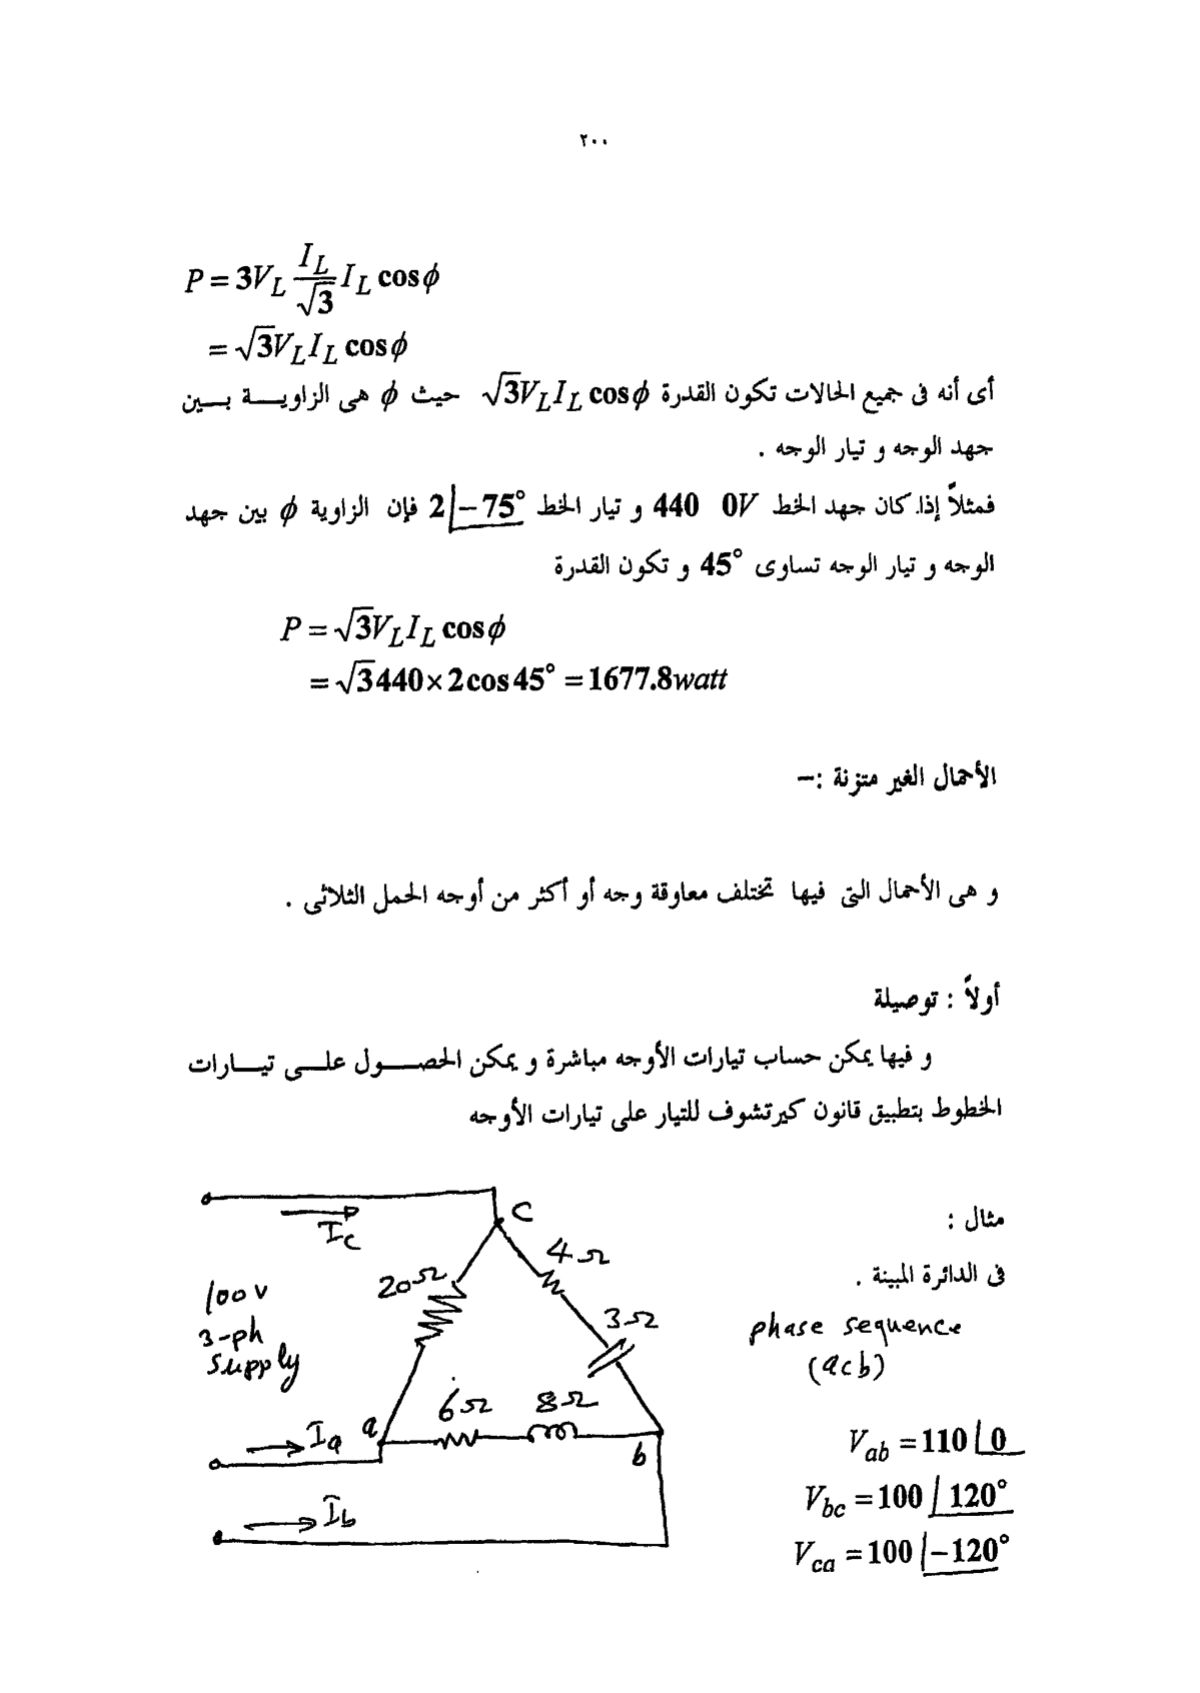 ٢٠٠
P = 3V_L \frac{I_L}{\sqrt{3}} I_L cos ϕ
= √3V_L I_L cos ϕ
أى أنه فى جميع الحالات تكون القدرة √3V_L I_L cos ϕ حيث ϕ هى الزاويــة بــين
جهد الوجه و تيار الوجه .
فمثلاً إذا كان جهد الخط 440 0V و تيار الخط 2|−75° فإن الزاوية ϕ بين جهد
الوجه و تيار الوجه تساوى 45° و تكون القدرة
P = √3V_L I_L cos ϕ
= √3 440×2 cos 45° = 1677.8 watt
الأحمال الغير متزنة :–
و هى الأحمال التى فيها تختلف معاوقة وجه أو أكثر من أوجه الحمل الثلاثى .
أولاً : توصيلة
و فيها يمكن حساب تيارات الأوجه مباشرة و يمكن الحصــول علــى تيــارات
الخطوط بتطبيق قانون كيرتشوف للتيار على تيارات الأوجه
مثال :
فى الدائرة المبينة .
phase sequence
(acb)
V_ab = 110|0
V_bc = 100|120°
V_ca = 100|−120°
I_c
c
4Ω
20Ω
3Ω
100 v
3-ph
supply
6Ω
8Ω
I_a
a
b
I_b